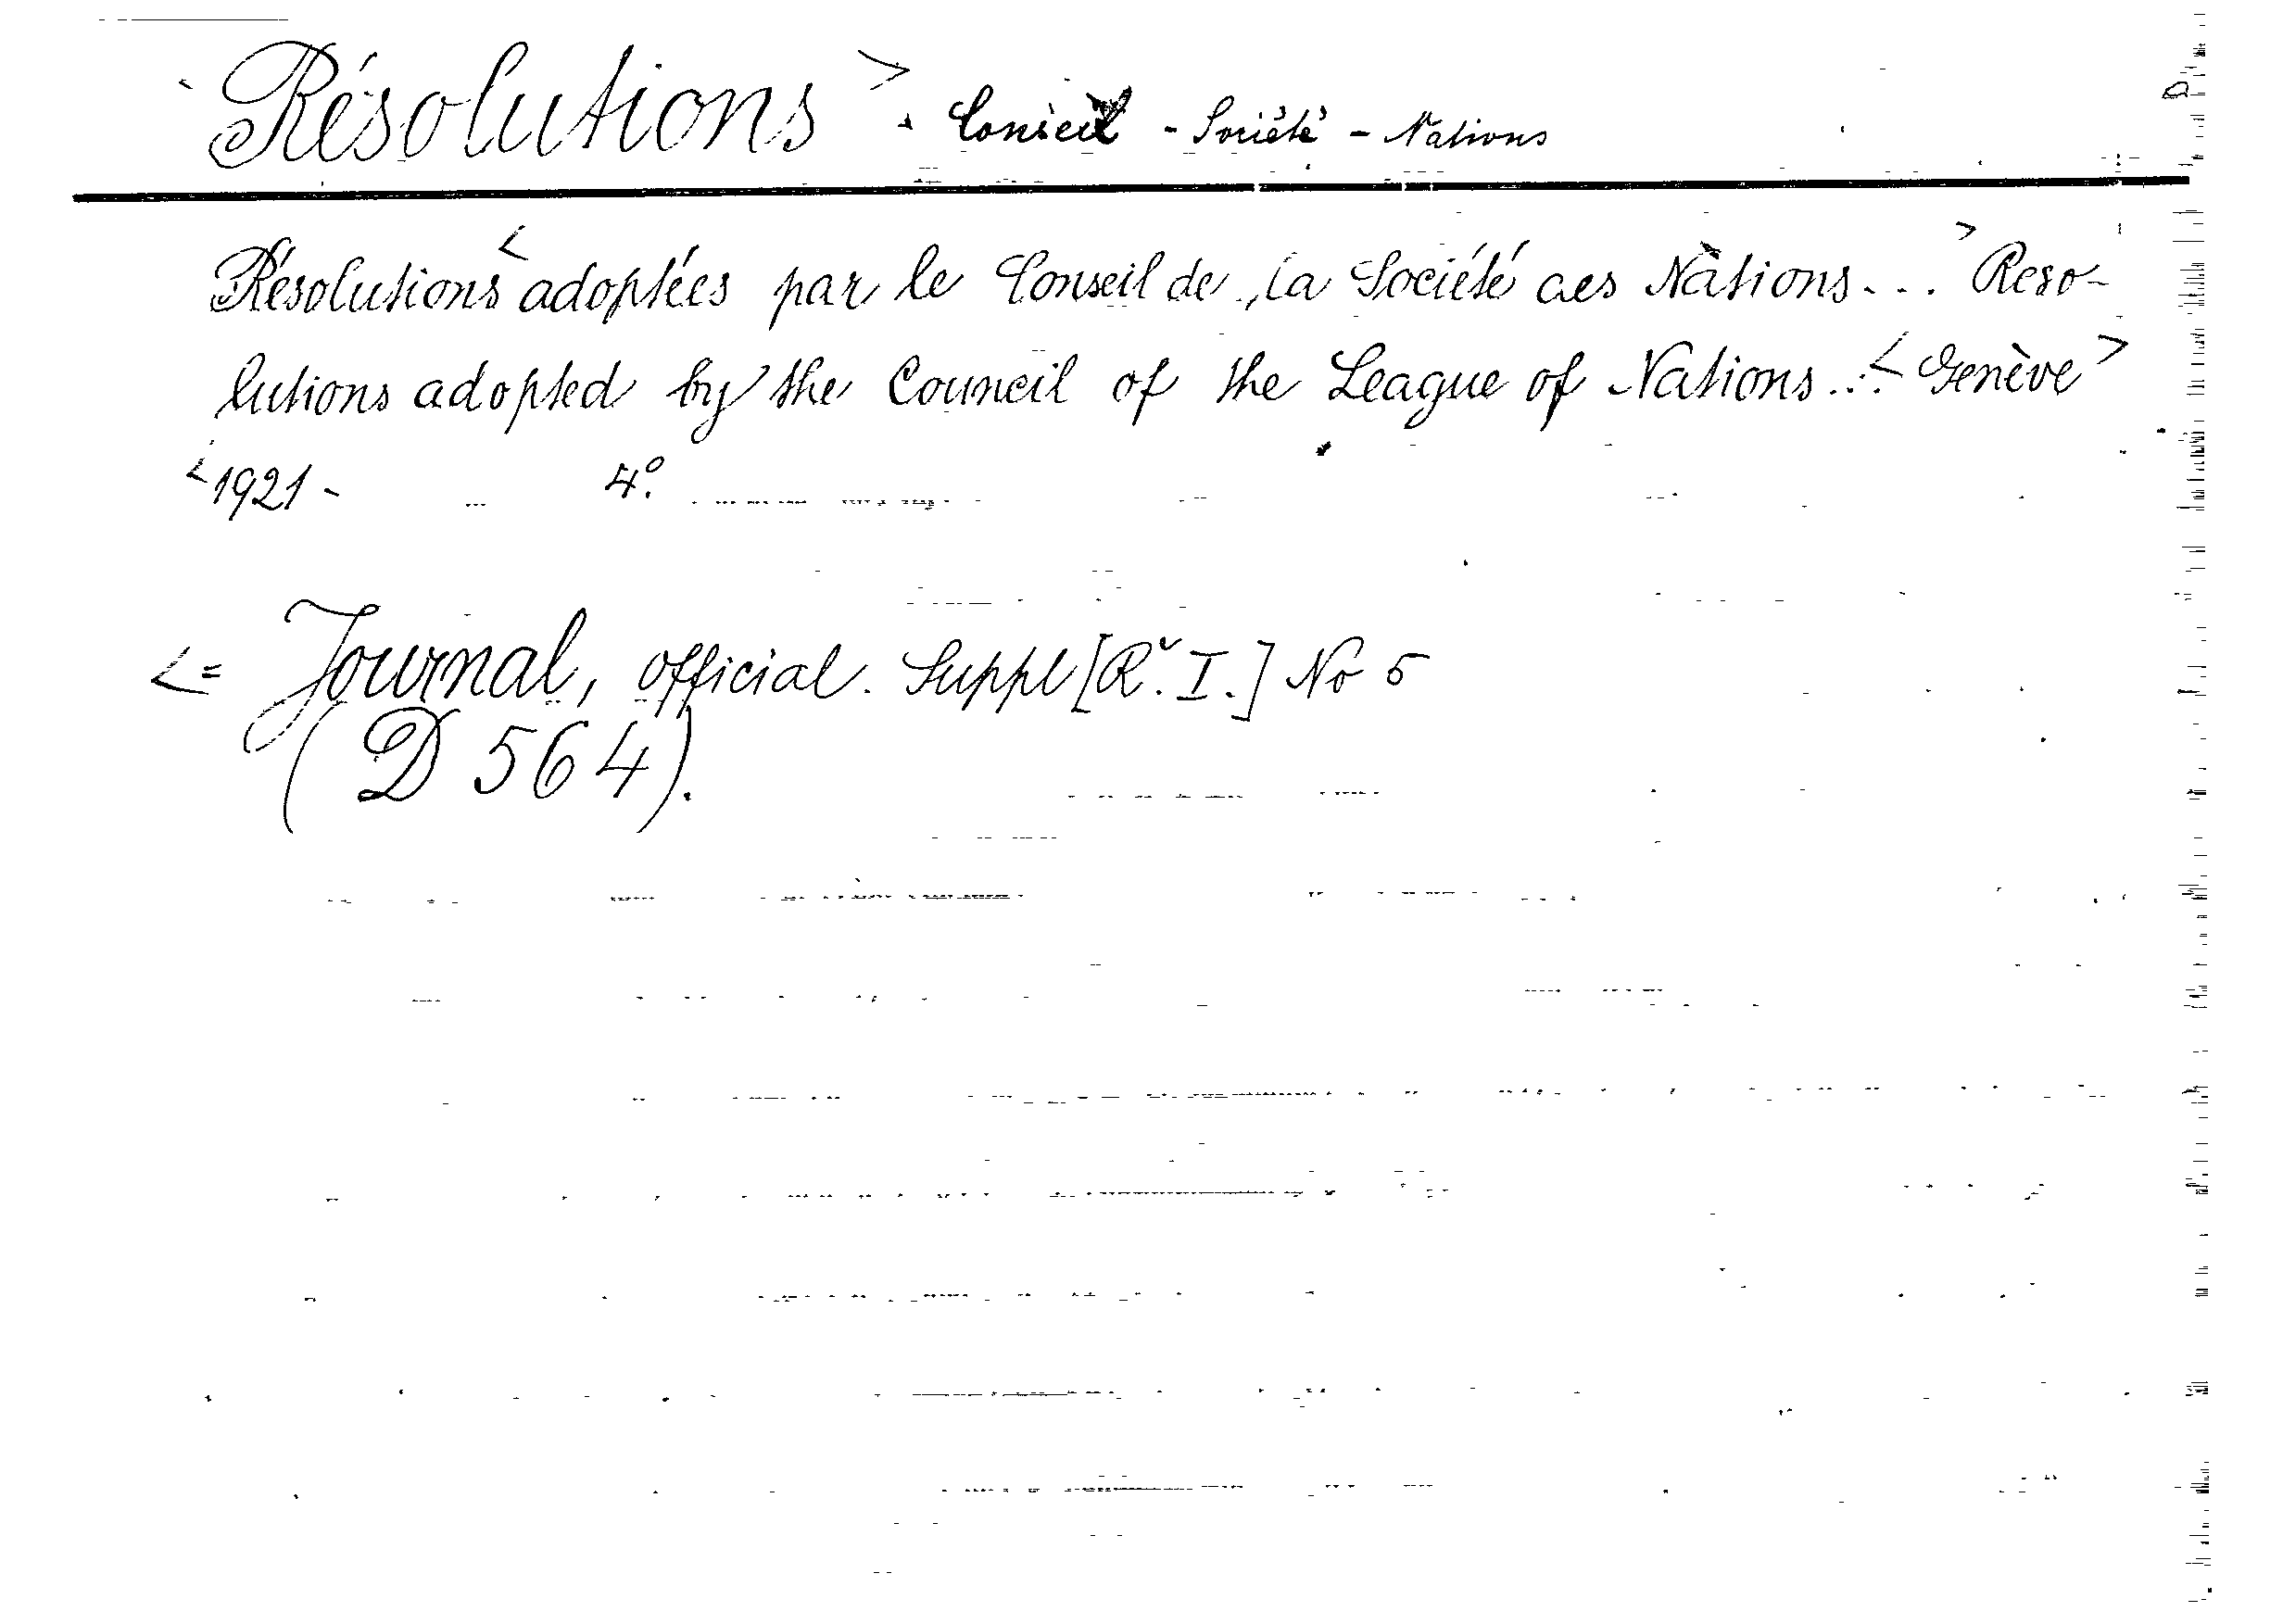 <Résolutions>. Conseil - Société - Nations
Résolutions <adoptées par le Conseil de la Société des Nations...> Reso-
lutions adopted by the Council of the League of Nations... <Genève>
<1921 - 4º.
<= Journal, official. Suppl [Rˇ. I.] No 5
(D 564).